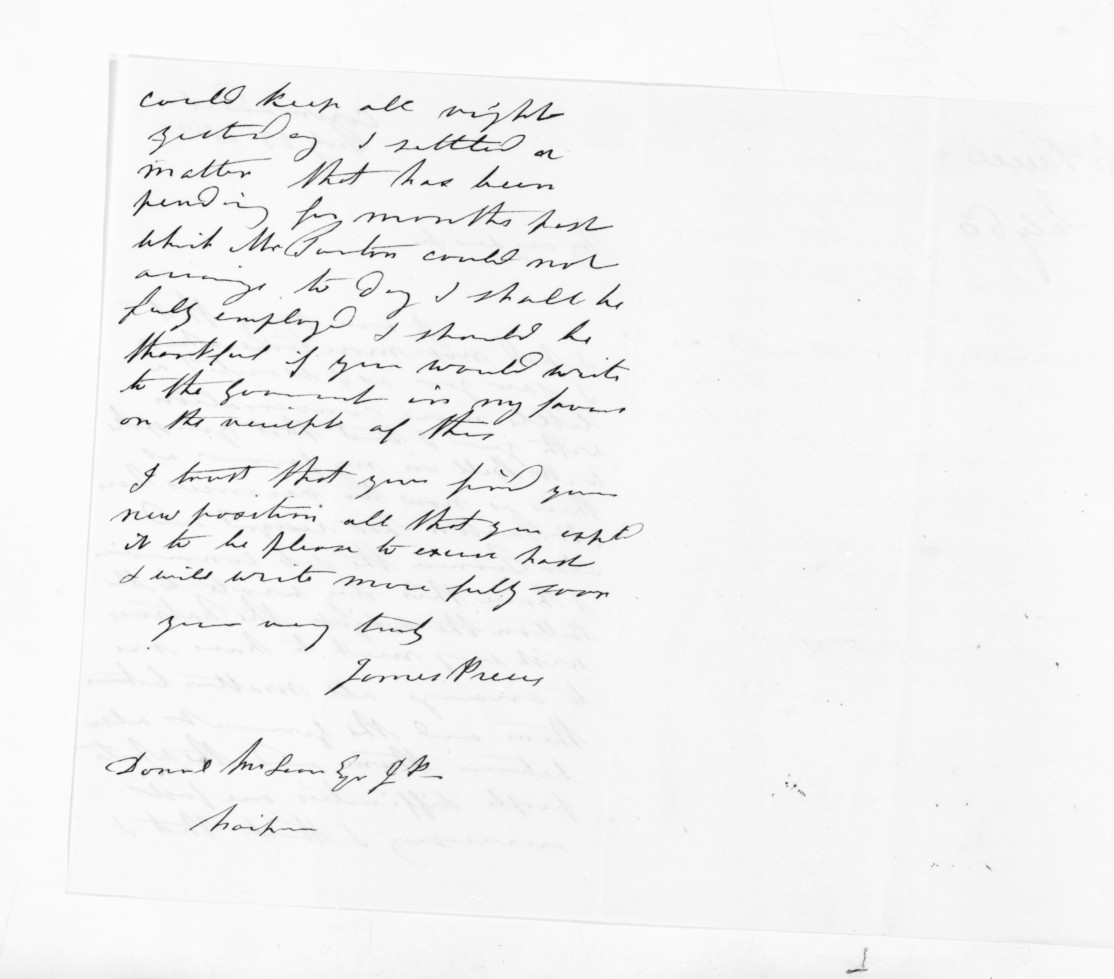 could keep all right
yesterday I settled a
matter that has been
pending for months past
which Mr Purton could not
arrange to day I shall be
fully employd I should be
thankful if you would write
to the Goverment in my favour
on the receipt of this
I trust that you find your
new position all that you exptd
it to be please to excuse hast
I will write more fully soon
yours very truly
James Preece
Donald McLean Esqr JP